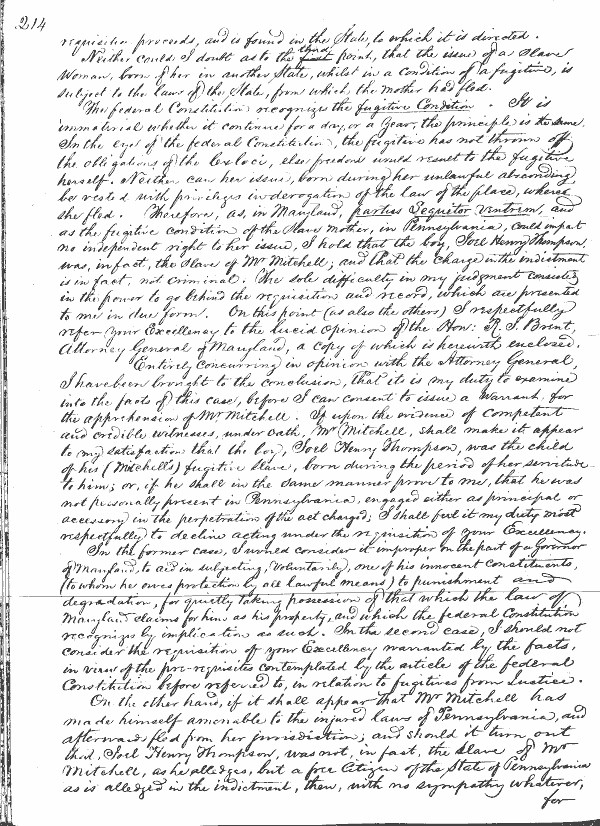 214
requisition proceeds, and is found in the State, to which it is directed.
Neither could I doubt as to the third point, that the issue of a slave
woman, born of her in another State, whilst in a condition of a fugitive, is
subject to the law of the State, from which the mother had fled.
The federal Constitution recognize the fugitive Condition. It is
immaterial whether it continue for a day, or a year, the principle is the same.
In the eye of the federal Constitution, the fugitive has not thrown off
the obligations of the lex loci, else freedom would result to the fugitive
herself. Neither can her issue, born during her unlawful absconding
be vested with privileges in derogation of the law of the place, whence
she fled. Therefore, as, in Maryland, partus Sequitor Ventrem, and
as the fugitive condition of the slave mother, in Pennsylvania, could impart
no independent right to her issue, I hold that the boy, Joel Henry Thompson,
was, in fact, the slave of Mr Mitchell; and that the Charge in the indictment
is in fact, not criminal. The sole difficulty in my judgment consists
in the power to go behind the requisition and record, which are presented
to me in due form. On this point (as also the others) I respectfully
refer your Excellency to the lucid opinion of the Hon: R. J. Brent,
Attorney General of Maryland, a copy of which is herewith enclosed.
Entirely concurring in opinion with the Attorney General,
I have been brought to the conclusion, that it is my duty to examine
into the facts of this case, before I can consent to issue a Warrant for
the apprehension of Mr Mitchell. If upon the evidence of competent
and credible witnesses, under oath, Mr Mitchell, shall make it appear
to my satisfaction that the boy, Joel Henry Thompson, was the child
of his (Mitchell's) fugitive slave, born during the period of her servitude
to him; or, if he shall in the same manner prove to me, that he was
not personally present in Pennsylvania, engaged either as principal or
accessory in the perpetration of the act charged; I shall feel it my duty most
respectfully to decline acting under the requisition of your Excellency.
In the former case, I would consider it improper on the part of a Governor
of Maryland, to aid in subjecting, Voluntarily, one of his innocent Constituents,
(to whom he owes protection by all lawful means) to punishment and
degradation, for quietly taking possession of that which the law of
Maryland claims for him as his property, and which the federal Constitution
recognizes by implication as such. In the second case, I should not
consider the requisition of your Excellency warranted by the facts,
in view of the pre-requisites contemplated by the article of the federal
Constitution before referred to, in relation to fugitives from Justice.
On the other hand, if it shall appear that Mr Mitchell has
made himself amenable to the injured laws of Pennsylvania, and
afterward fled from her jurisdiction; and should it turn out
that, Joel Henry Thompson, was not, in fact, the slave of Mr
Mitchell, as he alledges, but a free Citizen of the State of Pennsylvania
as is alledged in the indictment, then, with no sympathy whatever,
for